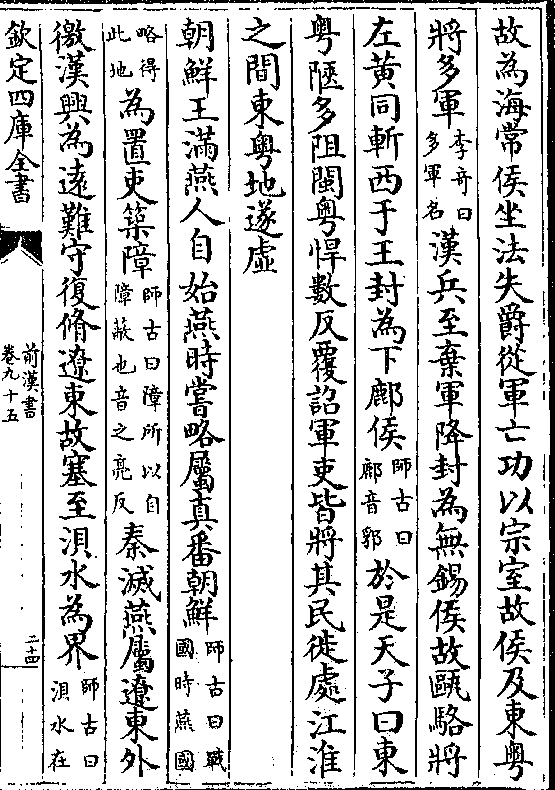 故為海常侯坐法失爵從軍亡功以宗室故侯及東粤
將多軍李竒曰多軍名漢兵至棄軍降封為無錫侯故甌駱將
左黄同斬西于王封為下鄜侯師古曰鄜音郭於是天子曰東
粤陿多阻閩粤悍數反覆詔軍吏皆將其民徙處江淮
之間東粤地遂虛
朝鮮王滿燕人自始燕時嘗略屬真番朝鮮師古曰戰國時燕國
略得此地為置吏築障師古曰障所以自障蔽也音之亮反秦滅燕屬遼東外
徼漢興為逺難守復脩遼東故塞至浿水為界師古曰浿水在
欽定四庫全書
前漢書
卷九十五
二十四